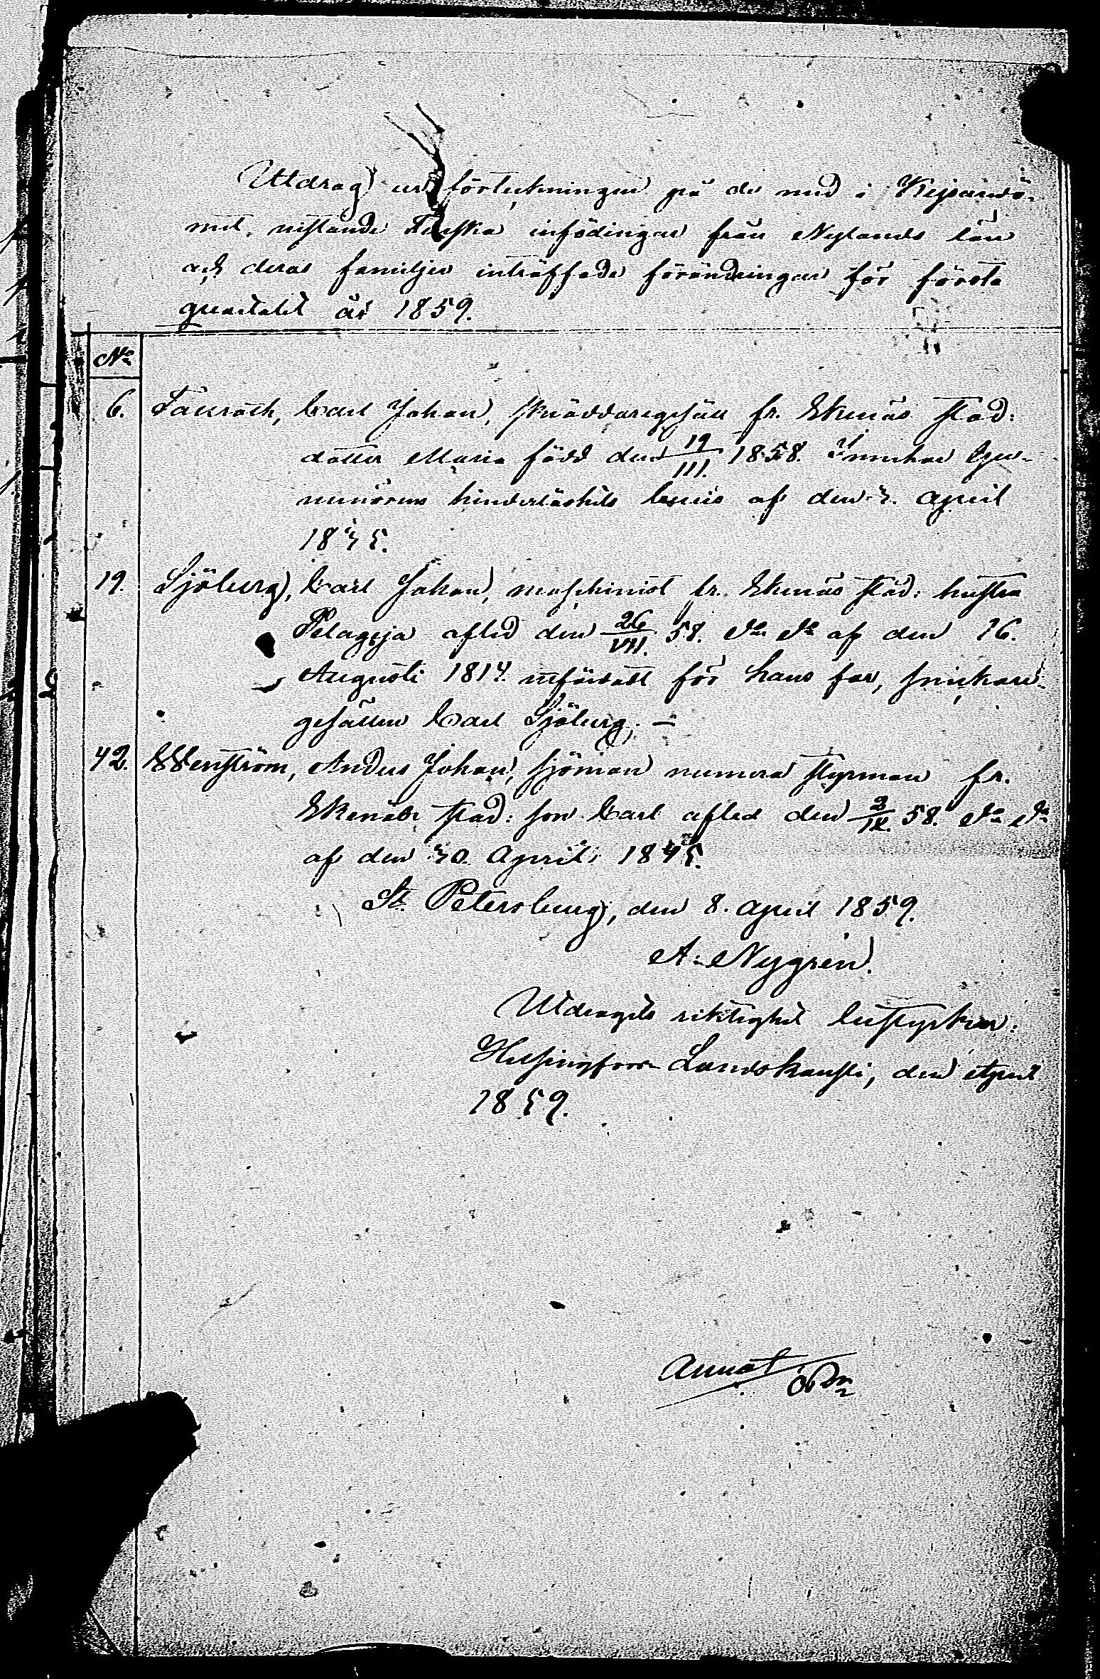 Utdrag ur förteckningen på de med i Kejsardö-
met vistande Finska infödingar från Nylands län
och deras familjer inträffade förändringar för första
quartalet år 1859.
No
6. Carl Johan, skräddaregesäll fr. Ekenäs stad:
dotter Maria född den 19/III. 1858. Innehar Gu-
vernörens hinderlöshets bevis af den 7. April
1875.
19. Sjöberg, Carl Johan, maschinist fr. Ekenäs stad: hustru
Pelageja afled den 26/VII. 58. do do af den 16.
Augusti 1817. utfärdatt för hans far, snickare-
gesällen Carl Sjöberg. —
42. Wenström, Anders Johan, sjöman numera styrman fr.
Ekenäs stad: son Carl afled den 2/IX. 58. do do
af den 30. April 1845.
St. Petersburg, den 8. April 1859.
A. Nygrén.
Utdragets riktighet bestyrkes:
Helsingfors Landskansli, den April
1859.